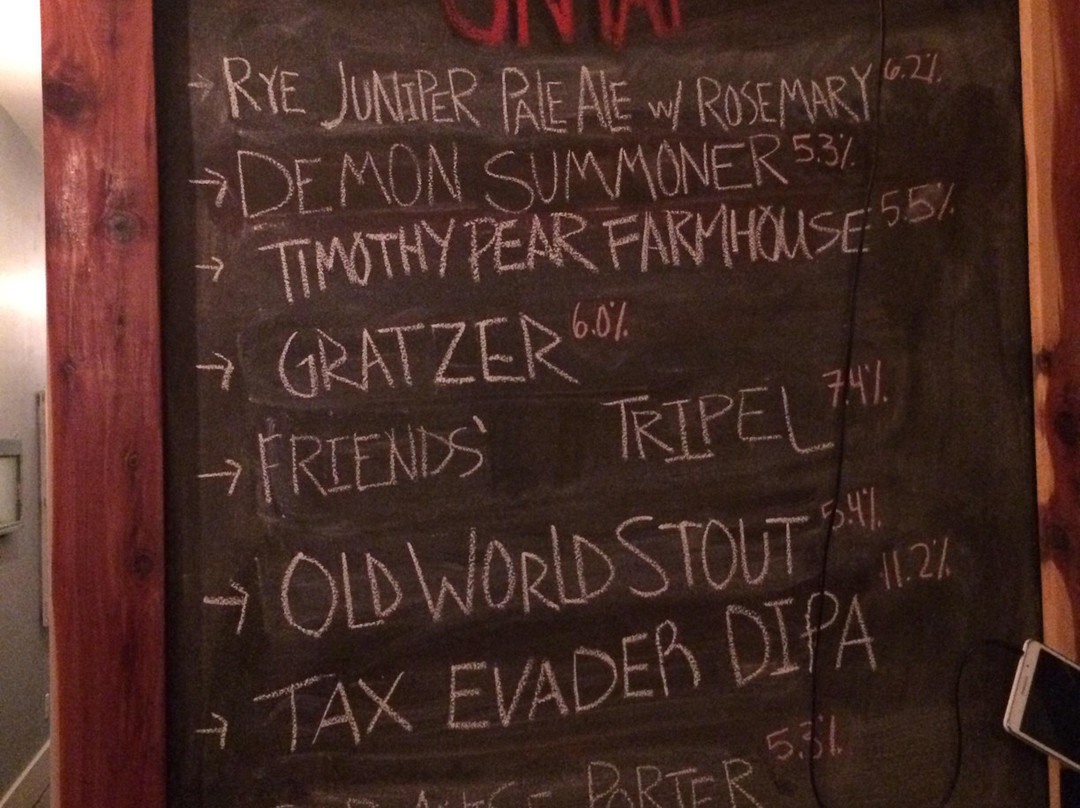 ON TAP
→ RYE JUNIPER PALE ALE W/ ROSEMARY 6.2%
→ DEMON SUMMONER 5.3%
→ TIMOTHY PEAR FARMHOUSE 5.5%
→ GRATZER 6.0%
→ FRIENDS' TRIPEL 7.4%
→ OLD WORLD STOUT 5.4%
→ TAX EVADER DIPA 11.2%
PORTER 5.3%